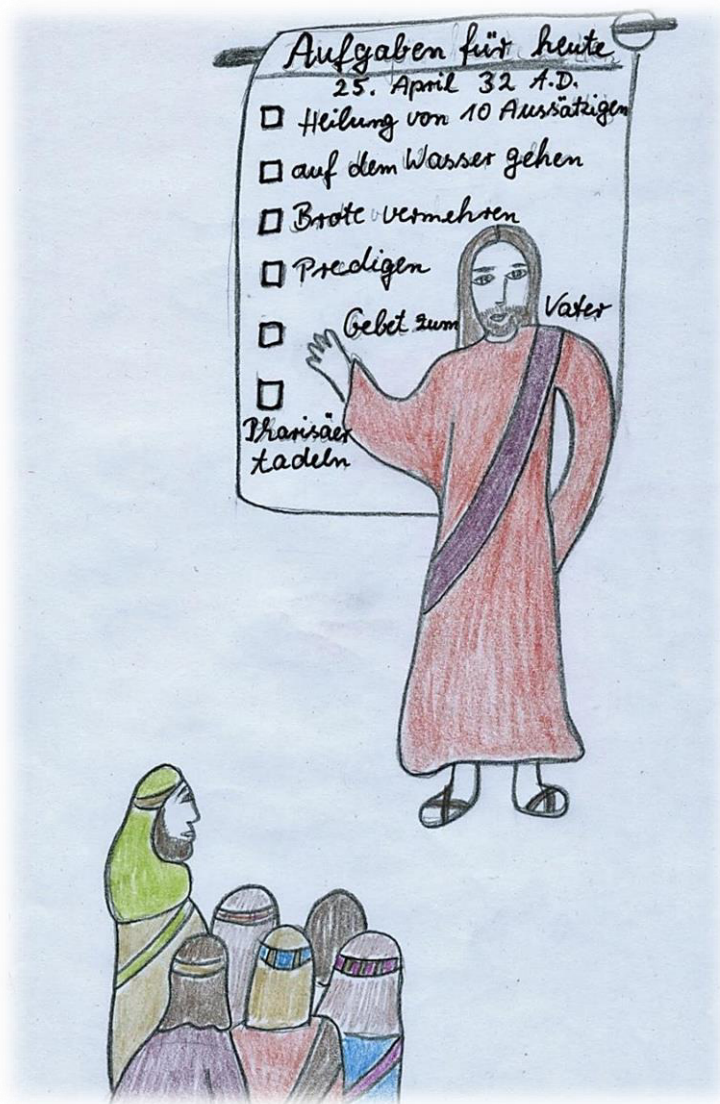 Aufgaben für heute
25. April 32 A.D.
Heilung von 10 Aussätzigen
auf dem Wasser gehen
Brote vermehren
Predigen
Gebet zum Vater
Pharisäer
tadeln